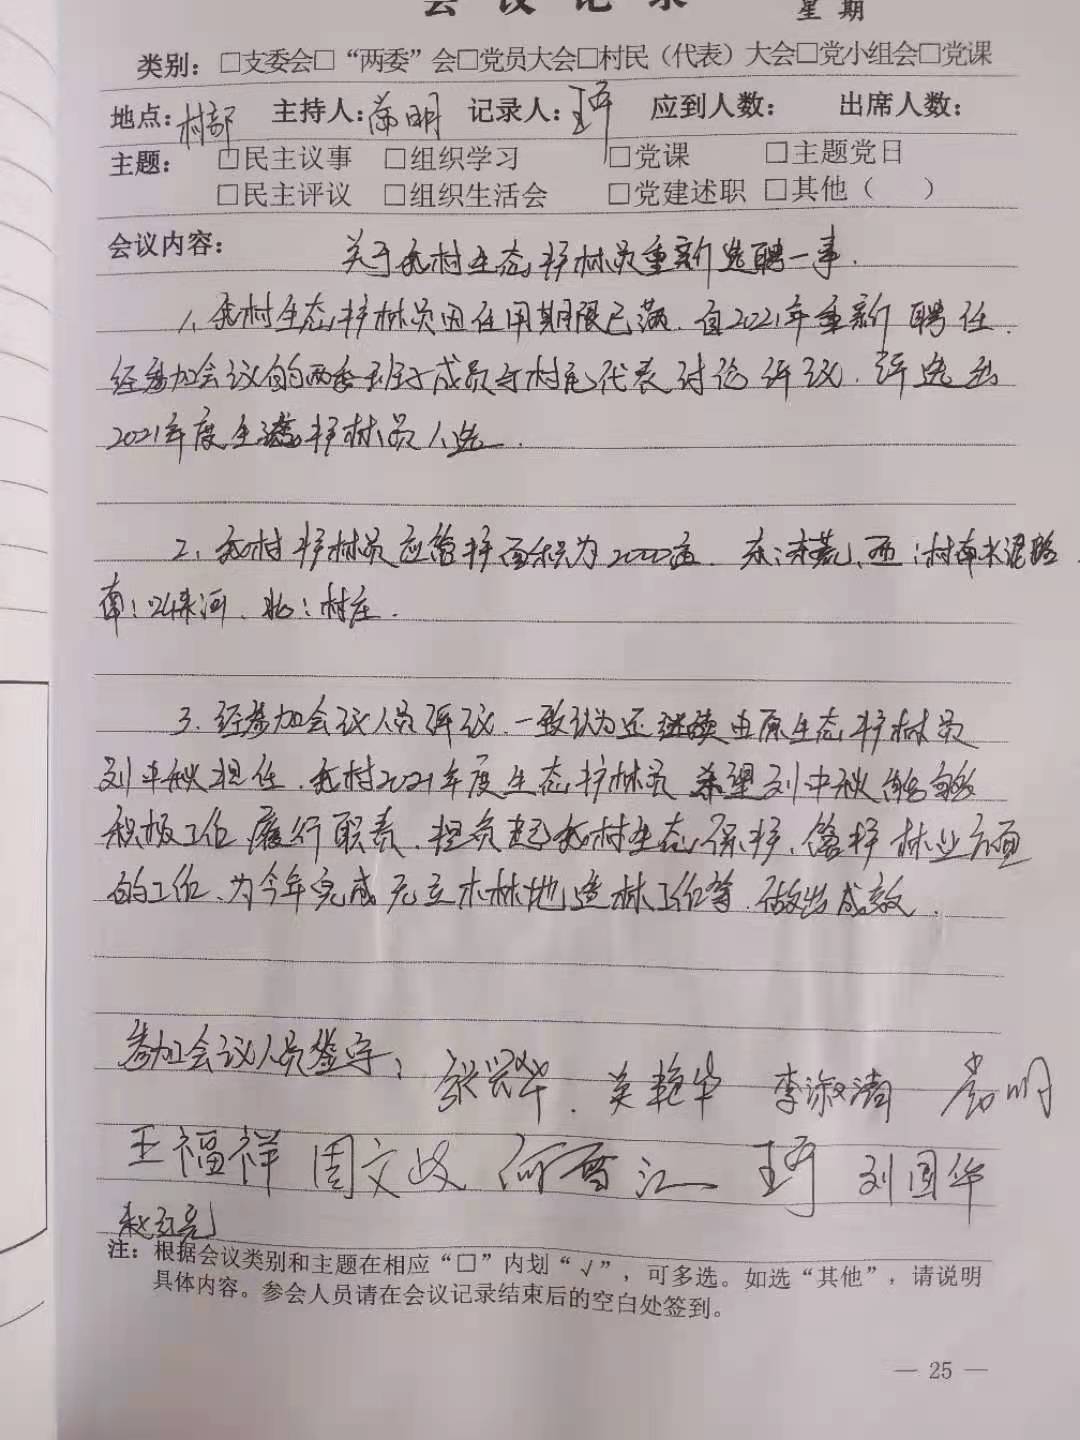 会议记录
星期
类别：□支委会□“两委”会□党员大会□村民（代表）大会□党小组会□党课
地点：村部 主持人：尚明 记录人：王 应到人数： 出席人数：
主题： □民主议事 □组织学习 □党课 □主题党日
□民主评议 □组织生活会 □党建述职 □其他（ ）
会议内容： 关于我村生态护林员重新选聘一事.
1、我村生态护林员因任用期限已满.自2021年重新聘任.
经参加会议的两委班子成员与村民代表讨论评议.评选出
2021年度生态护林员人选.
2、我村护林员应管护面积为2000亩.东:荒、西:村南水泥路
南:河、北:村庄.
3.经参加会议人员评议.一致认为还继续由原生态护林员
刘中秋担任.我村2021年度生态护林员 希望刘中秋能够
积极工作 履行职责.担负起我村生态保护、管护林业方面
的工作、为今年完成无立木林地造林工作等.做出成效.
参加会议人员签字:张兴华.吴艳华 李淑清 尚明
王福祥 周文 何 江 王 刘国华
赵亮
注：根据会议类别和主题在相应“□”内划“√”，可多选。如选“其他”，请说明
具体内容。参会人员请在会议记录结束后的空白处签到。
— 25 —